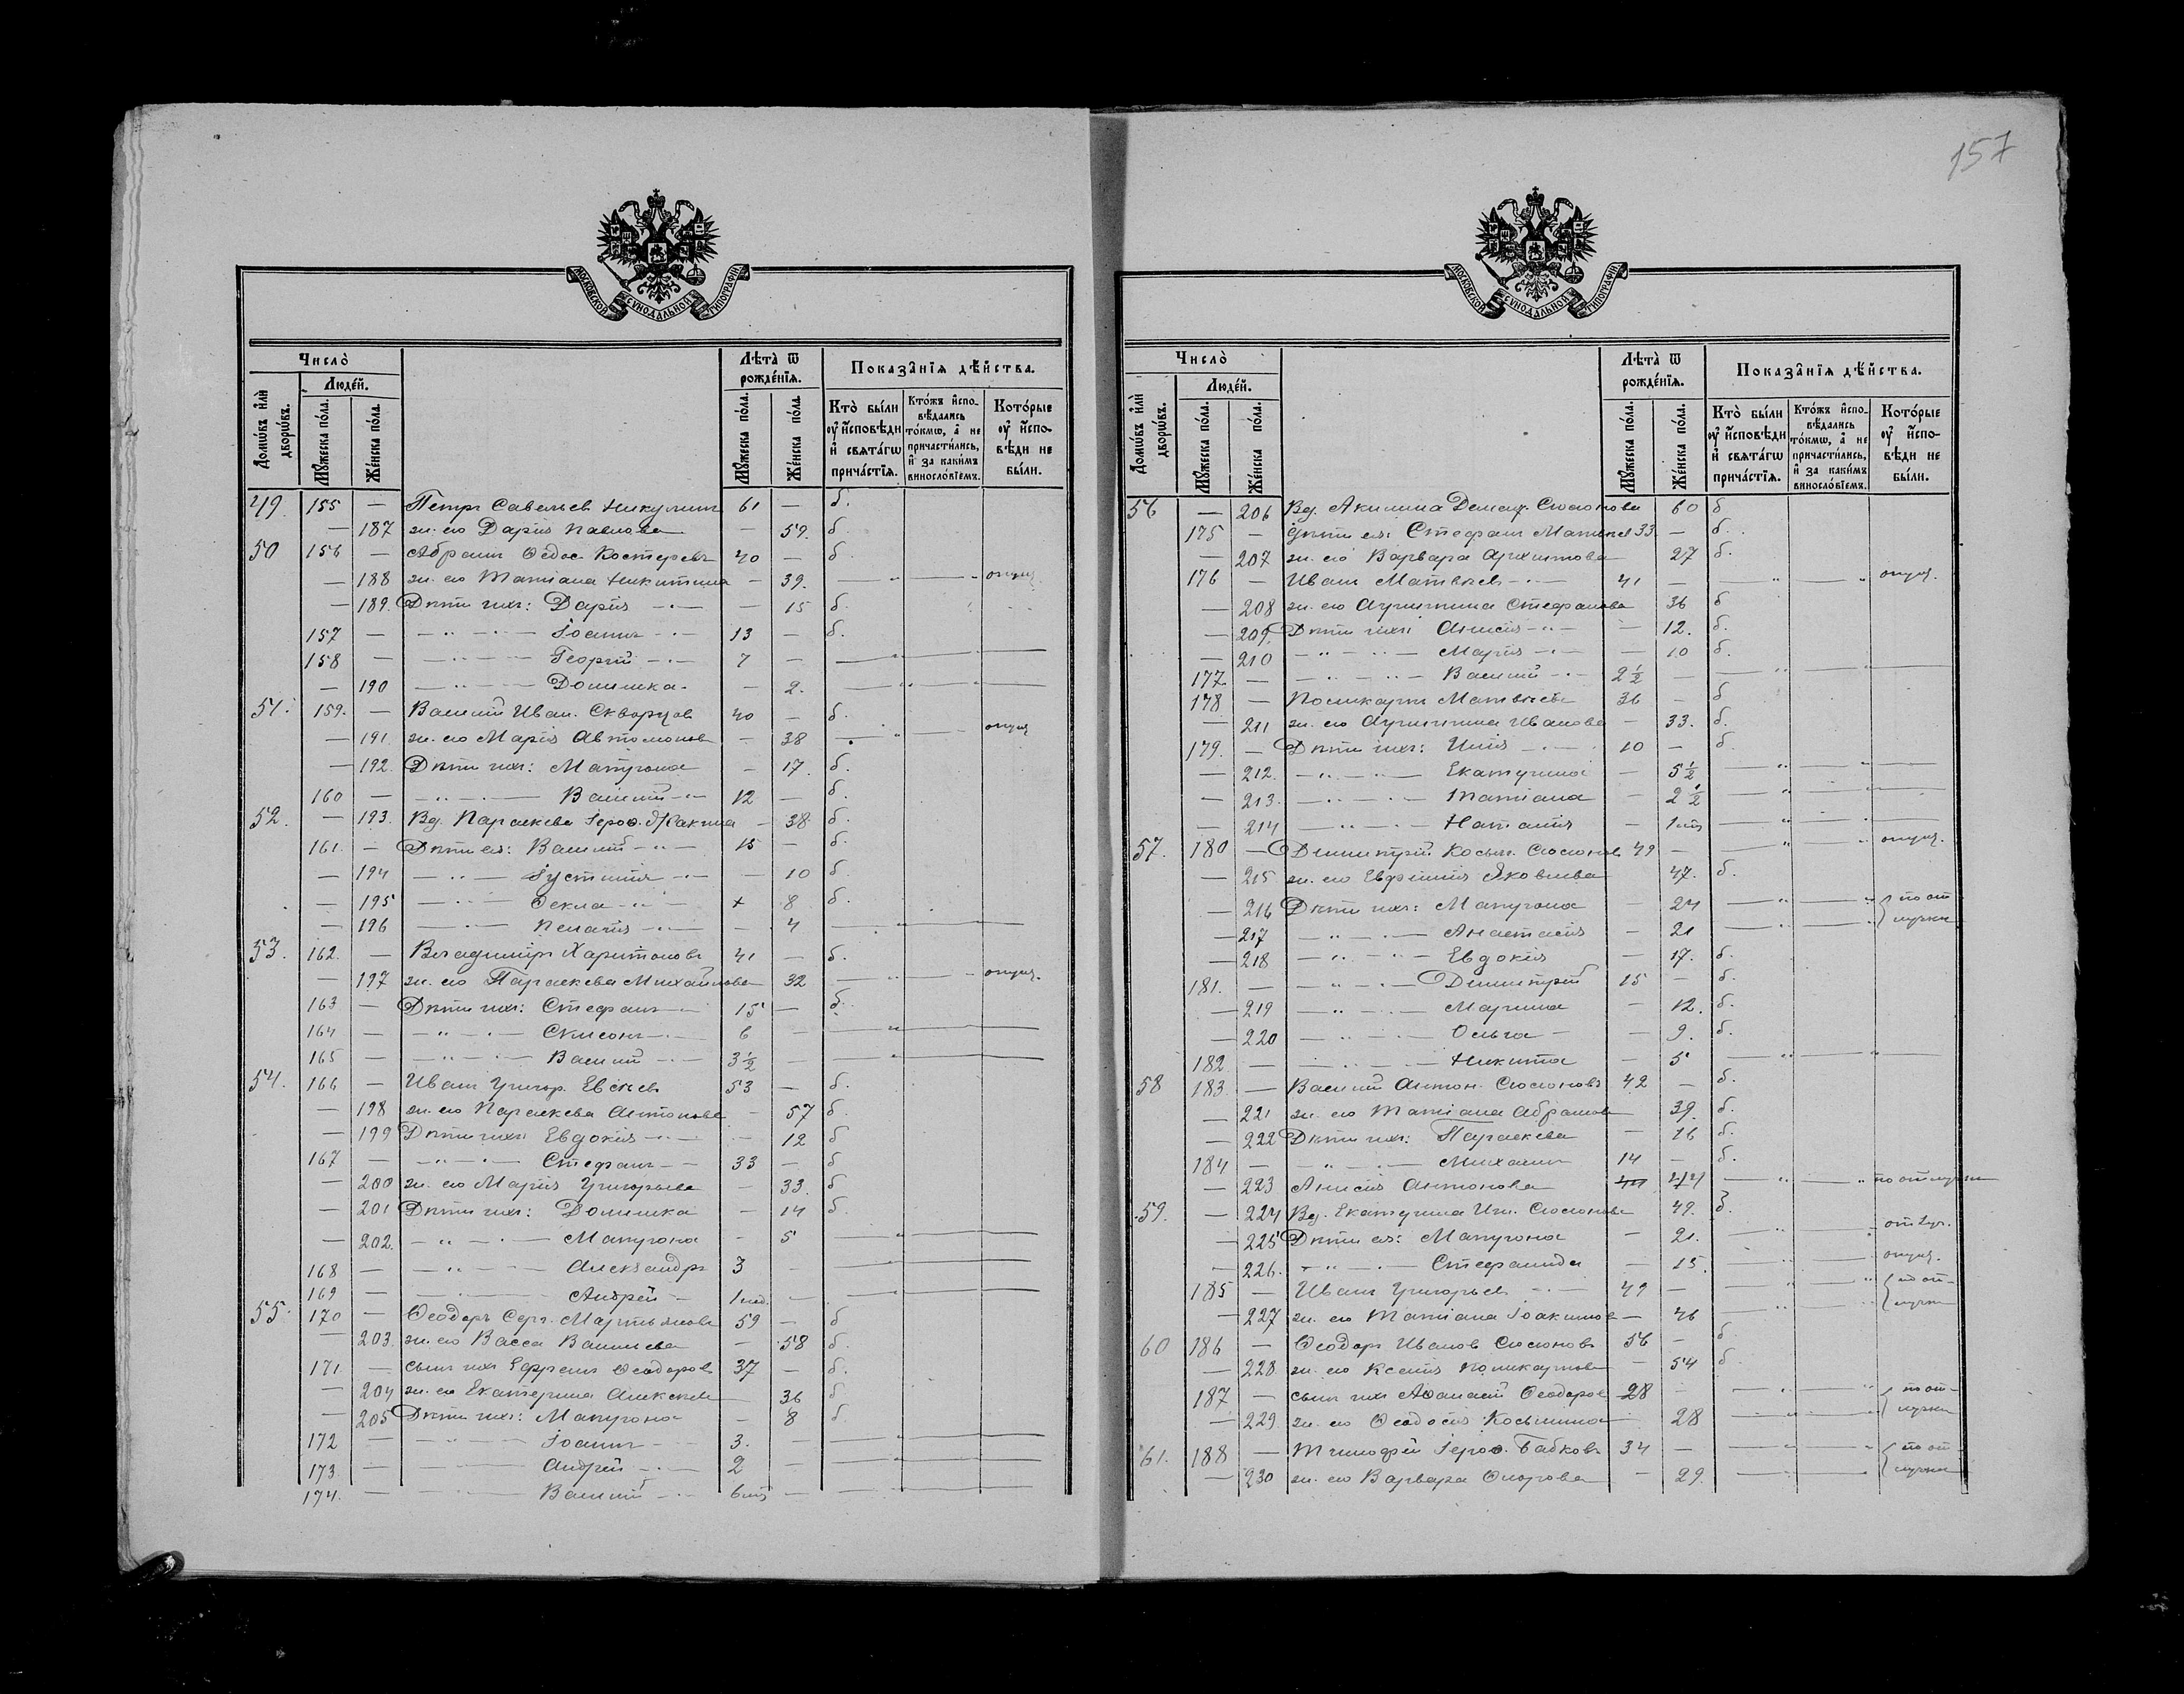 157
МОСКОВСКОЙ СѴНОДАЛЬНОЙ ТИПОГРАФІИ
Число̀
Люде́й.
Домѡ́въ и҆лѝ дворѡ́въ.
Мꙋ́жеска по́ла.
Же́нска по́ла.
Лѣта̀ ѿ рожде́нїѧ.
Мꙋ́жеска по́ла.
Же́нска по́ла.
Показа̑нїѧ дѣ́йства.
Кто̀ бы́ли ᲂу҆ и҆сповѣди и҆ свѧта́гѡ прича́стїѧ.
Кто́жъ и҆сповѣдались то́кмѡ, а҆ не причасти́лись, и҆ за каки́мъ винослѡ́вїемъ.
Кото́рые ᲂу҆ и҆сповѣди не бы́ли.
49. 155 — Петръ Савельев Никулинъ 61 — б.
— 187 ж. его Дарія Павлова — 59. б.
50 156 — Абрамъ Ѳедос. Костеревъ 40 — б
— 188 ж. его Татіана Никитина — 39. — " — " опущ.
— 189. Дѣти ихъ: Дарія — 15 б.
157 — — " — Іоаннъ — 13 — б.
158 — — " — Георгій — 7 — — " —
— 190 — " — Домника — 2. — " —
51. 159. — Василій Иван. Скворцов 40 — б.
— 191. ж. его Марія Автомонов — 38 — " — опущ
— 192. Дѣти ихъ: Матрона — 17. б.
160 — — " — Василій — 12 — б.
52. — 193. Вд. Параскева Іероѳ. — 38 б.
161. — Дѣти ея: Василій — " — 15 — б.
— 194 — " — Іустинія — 10 б.
— 195 — " — Ѳекла — " — + 8 б.
— 196 — " — Пелагія — — 4 — " —
53. 162. — Владиміръ Харитоновъ 41 — б.
— 197 ж. его Параскева Михайлова — 32 — " — опущ.
163 — Дѣти ихъ: Стефанъ — 15 — б.
164 — — " — — 6 — " —
165 — — " — Василій — 3½ — — " —
54. 166 — Иванъ Григор. Евсѣевъ 53 — б.
— 198 ж. его Параскева Антонова — 57 б
— 199 Дѣти ихъ: Евдокія — 12 б
167 — — " — Стефанъ — 33 — б
— 200 ж. его Марія Григорьева — 33. б
— 201 Дѣти ихъ: Домника — 14 б.
— 202. — " — Матрона — 5 — " —
168 — — " — Александръ 3 — — " —
169 — — Андрей — 1 нед. — — " —
55. 170 — Ѳеодоръ Серг. Мартьянова 59 — б
— 203. ж. его Васса Васильева — 58 б.
171. — сынъ ихъ Ефремъ Ѳеодоров 37 — б.
— 204 ж. его Екатерина Алексѣева 36 б
— 205 Дѣти ихъ: Матрона — 8 б
172 — — " — Іоаннъ 3. — — " —
173. — — Андрей — 2 — — " —
174. — — Василій — 6 мѣс — — " —
МОСКОВСКОЙ СѴНОДАЛЬНОЙ ТИПОГРАФІИ
Число̀
Люде́й.
Домѡ́въ и҆лѝ дворѡ́въ.
Мꙋ́жеска по́ла.
Же́нска по́ла.
Лѣта̀ ѿ рожде́нїѧ.
Мꙋ́жеска по́ла.
Же́нска по́ла.
Показа̑нїѧ дѣ́йства.
Кто̀ бы́ли ᲂу҆ и҆сповѣди и҆ свѧта́гѡ прича́стїѧ.
Кто́жъ и҆сповѣдались то́кмѡ, а҆ не причасти́лись, и҆ за каки́мъ винослѡ́вїемъ.
Кото́рые ᲂу҆ и҆сповѣди не бы́ли.
56 — 206 Вд. Акилина Демент. Сюсюкова 60 б
175 — Дѣти ея: Стефанъ Матвѣев 33 — б.
— 207 ж. его Варвара Архипова 27 б.
176 — Иванъ Матвѣевъ — 41 — — " — " опущ.
— 208 ж. его Агриппина Стефанова 36 б
— 209. Дѣти ихъ: Анисія — " — — 12. б.
— 210 — " — Марія — — 10 б.
177. — — " — Василій — 2½ — — " —
178 — Поликарпъ Матвѣевъ 36 — б
— 211 ж. его Агриппина Иванова — 33. б.
179. — Дѣти ихъ: Илія — 10 — б.
— 212. — " — Екатерина — 5½ — " —
— 213. — " — Татіана — 2½ — " —
— 214 — " — Наталія — 1 мѣс — " —
57. 180 — Димитрій Косьм. Сюсюковъ 49 — — " — опущ.
— 215 ж. его Евфимія Яковлева 47. б.
— 216 Дѣти ихъ: Матрона — 24 — " — " по от
— 217 — " — Анастасія — 21 — " — " лучкѣ
— 218 — " — Евдокія — 17. б.
181. — — " — Димитрій 15 — б.
— 219 — " — Марина — 12. б.
— 220 — " — Ольга — — 9. б.
182 — — " — Никита — 5 — " — "
58 183 — Василій Антон. Сюсюковъ 42 — б.
— 221 ж. его Татіана Абрамова 39. б.
— 222 Дѣти ихъ: Параскева — 16 б.
184 — — " — Михаилъ 14 — б.
— 223 Анисія Антонова 44 44 — " — " по отлучкѣ
59. — 224 Вд. Екатерина Игн. Сюсюкова 49. б.
— 225 Дѣти ея: Матрона — 21. — " — отлуч.
— 226. — " — Стефанида — 15. — " — опущ.
185 — Иванъ Григорьевъ — 49 — — " — " по от-
— 227 ж. его Татіана Іоакимова — 46 — " — " лучкѣ
60 186 — Ѳеодоръ Иванов Сюсюковъ 56 — б
— 228 ж. его Ксенія Поликарпова — 54 б
187 — сынъ ихъ Аѳанасій Ѳеодоров 28 — — " — " по от-
— 229 ж. его Ѳеодосія Косьмина — 28 — " — " лучкѣ
61. 188 — Тимофей Іероѳ. Бабковъ 34 — — " — " по от-
— 230 ж. его Варвара — 29. — " — лучкѣ